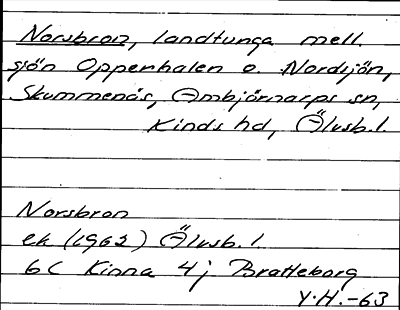 Norsbron, landtunga mell.
sjön Opperhalen o. Nordsjön,
Skummenäs, Ambjörnarps sn,
Kinds hd, Älvsb. l.
Norsbron
ek (1962) Älvsb. l
6C Kinna 4j Bratteborg
Y.H.-63